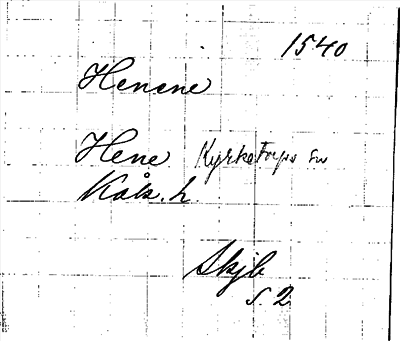 1540
Henene
Hene Kyrketorps sn
Kåk. h.
Skjb
s. 2